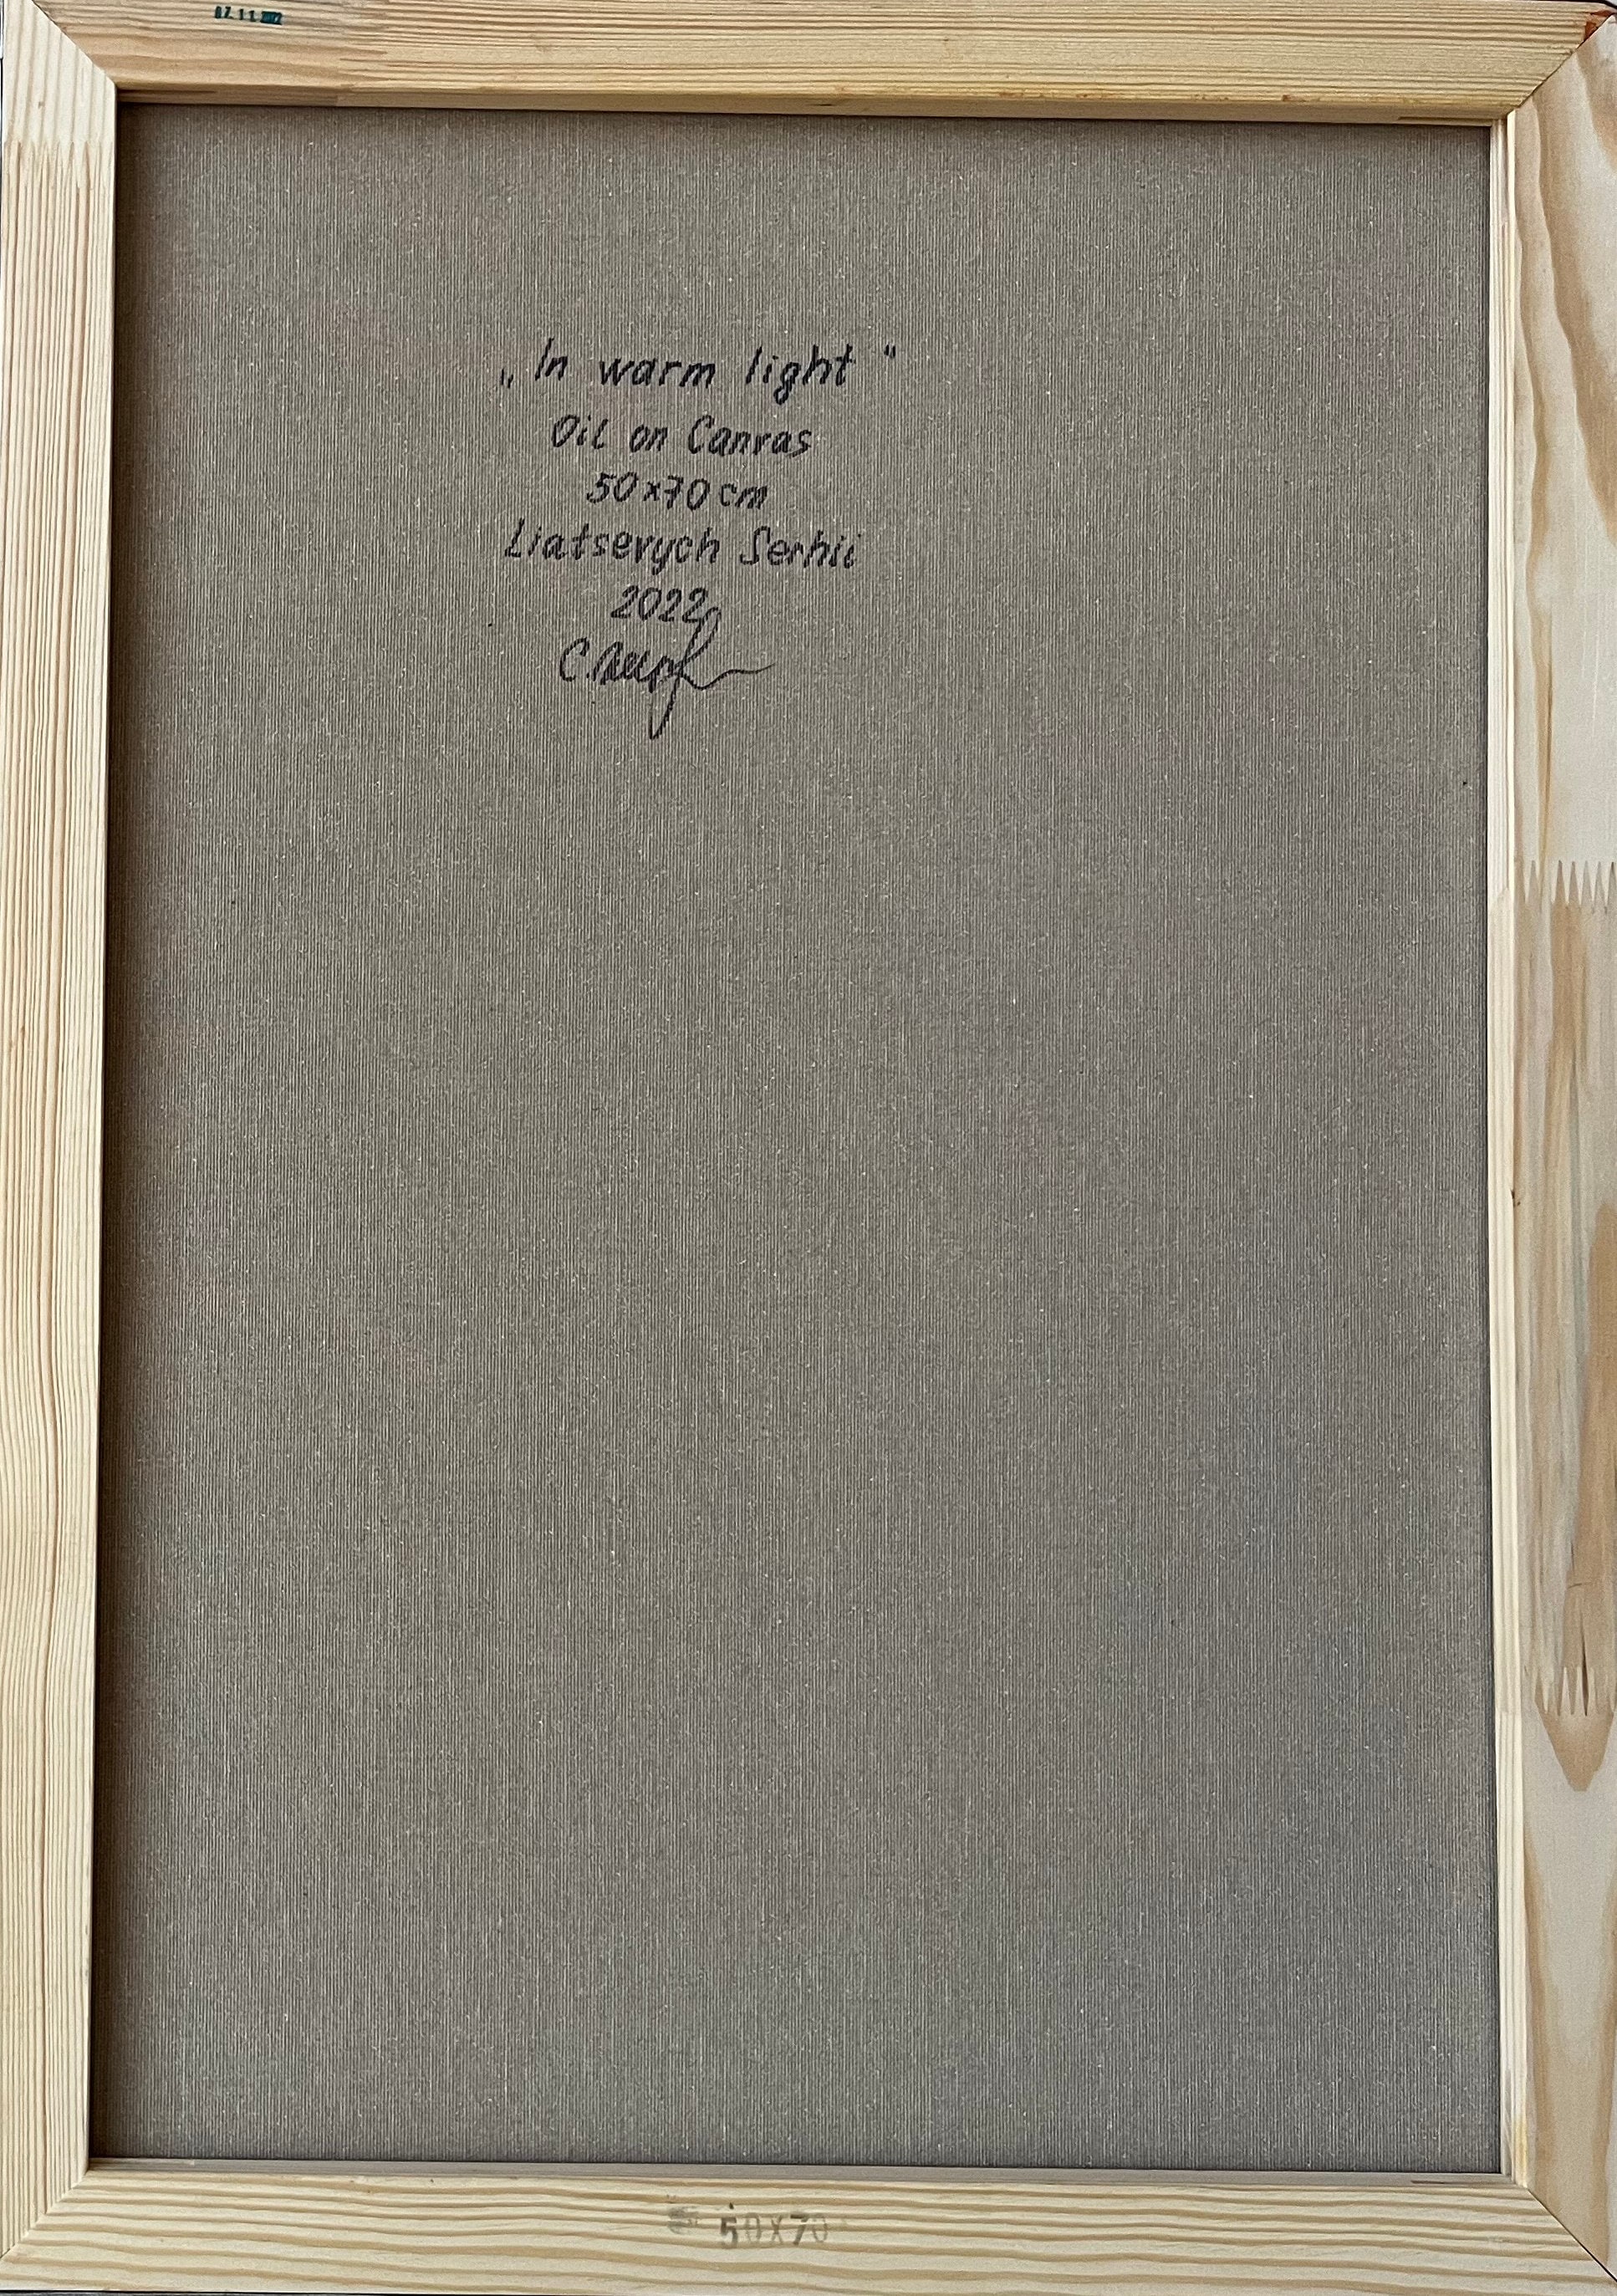 „In warm light“
Oil on Canvas
50x70 cm
Liatsevych Serhii
2022
50x70